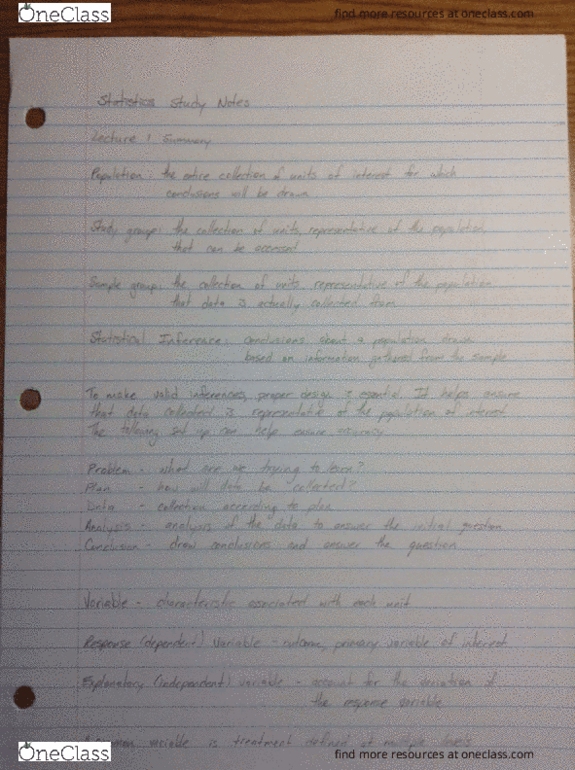 OneClass
find more resources at oneclass.com
Statistics Study Notes
Lecture 1 Summary
Population: the entire collection of units of interest for which
conclusions will be drawn
Study group: the collection of units, representative of the population,
that can be accessed
Sample group: the collection of units representative of the population
that data is actually collected from
Statistical Inference: conclusions about a population drawn
based on information gathered from the sample
To make valid inferences, proper design is essential. It helps ensure
that data collected is representative of the population of interest.
The following set up can help ensure accuracy
Problem - what are we trying to learn?
Plan - how will data be collected?
Data - collection according to plan
Analysis - analysis of the data to answer the initial question
Conclusion - draw conclusions and answer the question
Variable - characteristic associated with each unit
Response (dependent) Variable - outcome, primary variable of interest
Explanatory (independent) variable - account for the variation of
the response variable
A common variable is treatment defined at multiple levels
OneClass
find more resources at oneclass.com